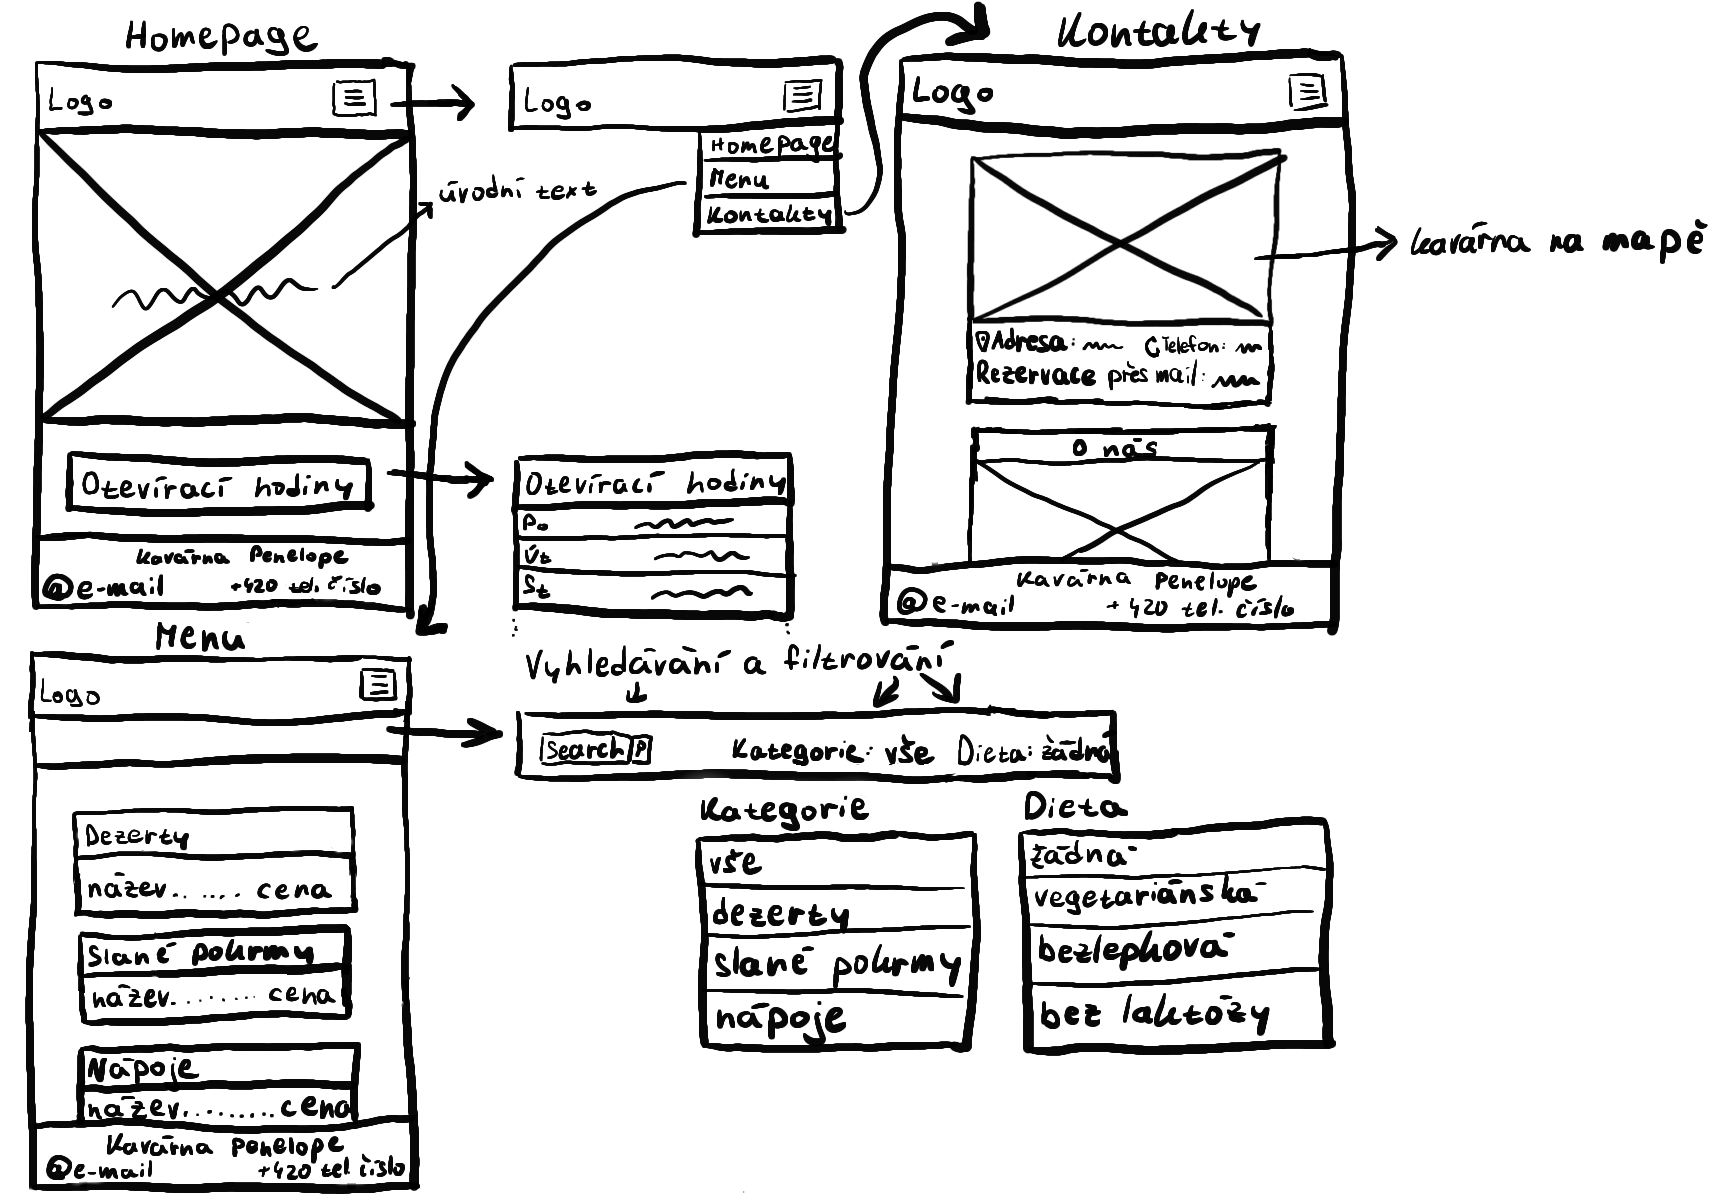 Homepage
Logo
úvodní text
Otevírací hodiny
Kavárna Penelope
@ e-mail +420 tel. číslo
Logo
Homepage
Menu
Kontakty
Kontakty
Logo
kavárna na mapě
Adresa: Telefon:
Rezervace přes mail:
O nás
Kavárna Penelope
@ e-mail +420 tel. číslo
Otevírací hodiny
Po
Út
St
Menu
Logo
Dezerty
název....... cena
Slané pokrmy
název......... cena
Nápoje
název......... cena
Kavárna Penelope
@ e-mail +420 tel číslo
Vyhledávání a filtrování
Search Kategorie: vše Dieta: žádná
Kategorie
vše
dezerty
slané pokrmy
nápoje
Dieta
žádná
vegetariánská
bezlepková
bez laktózy